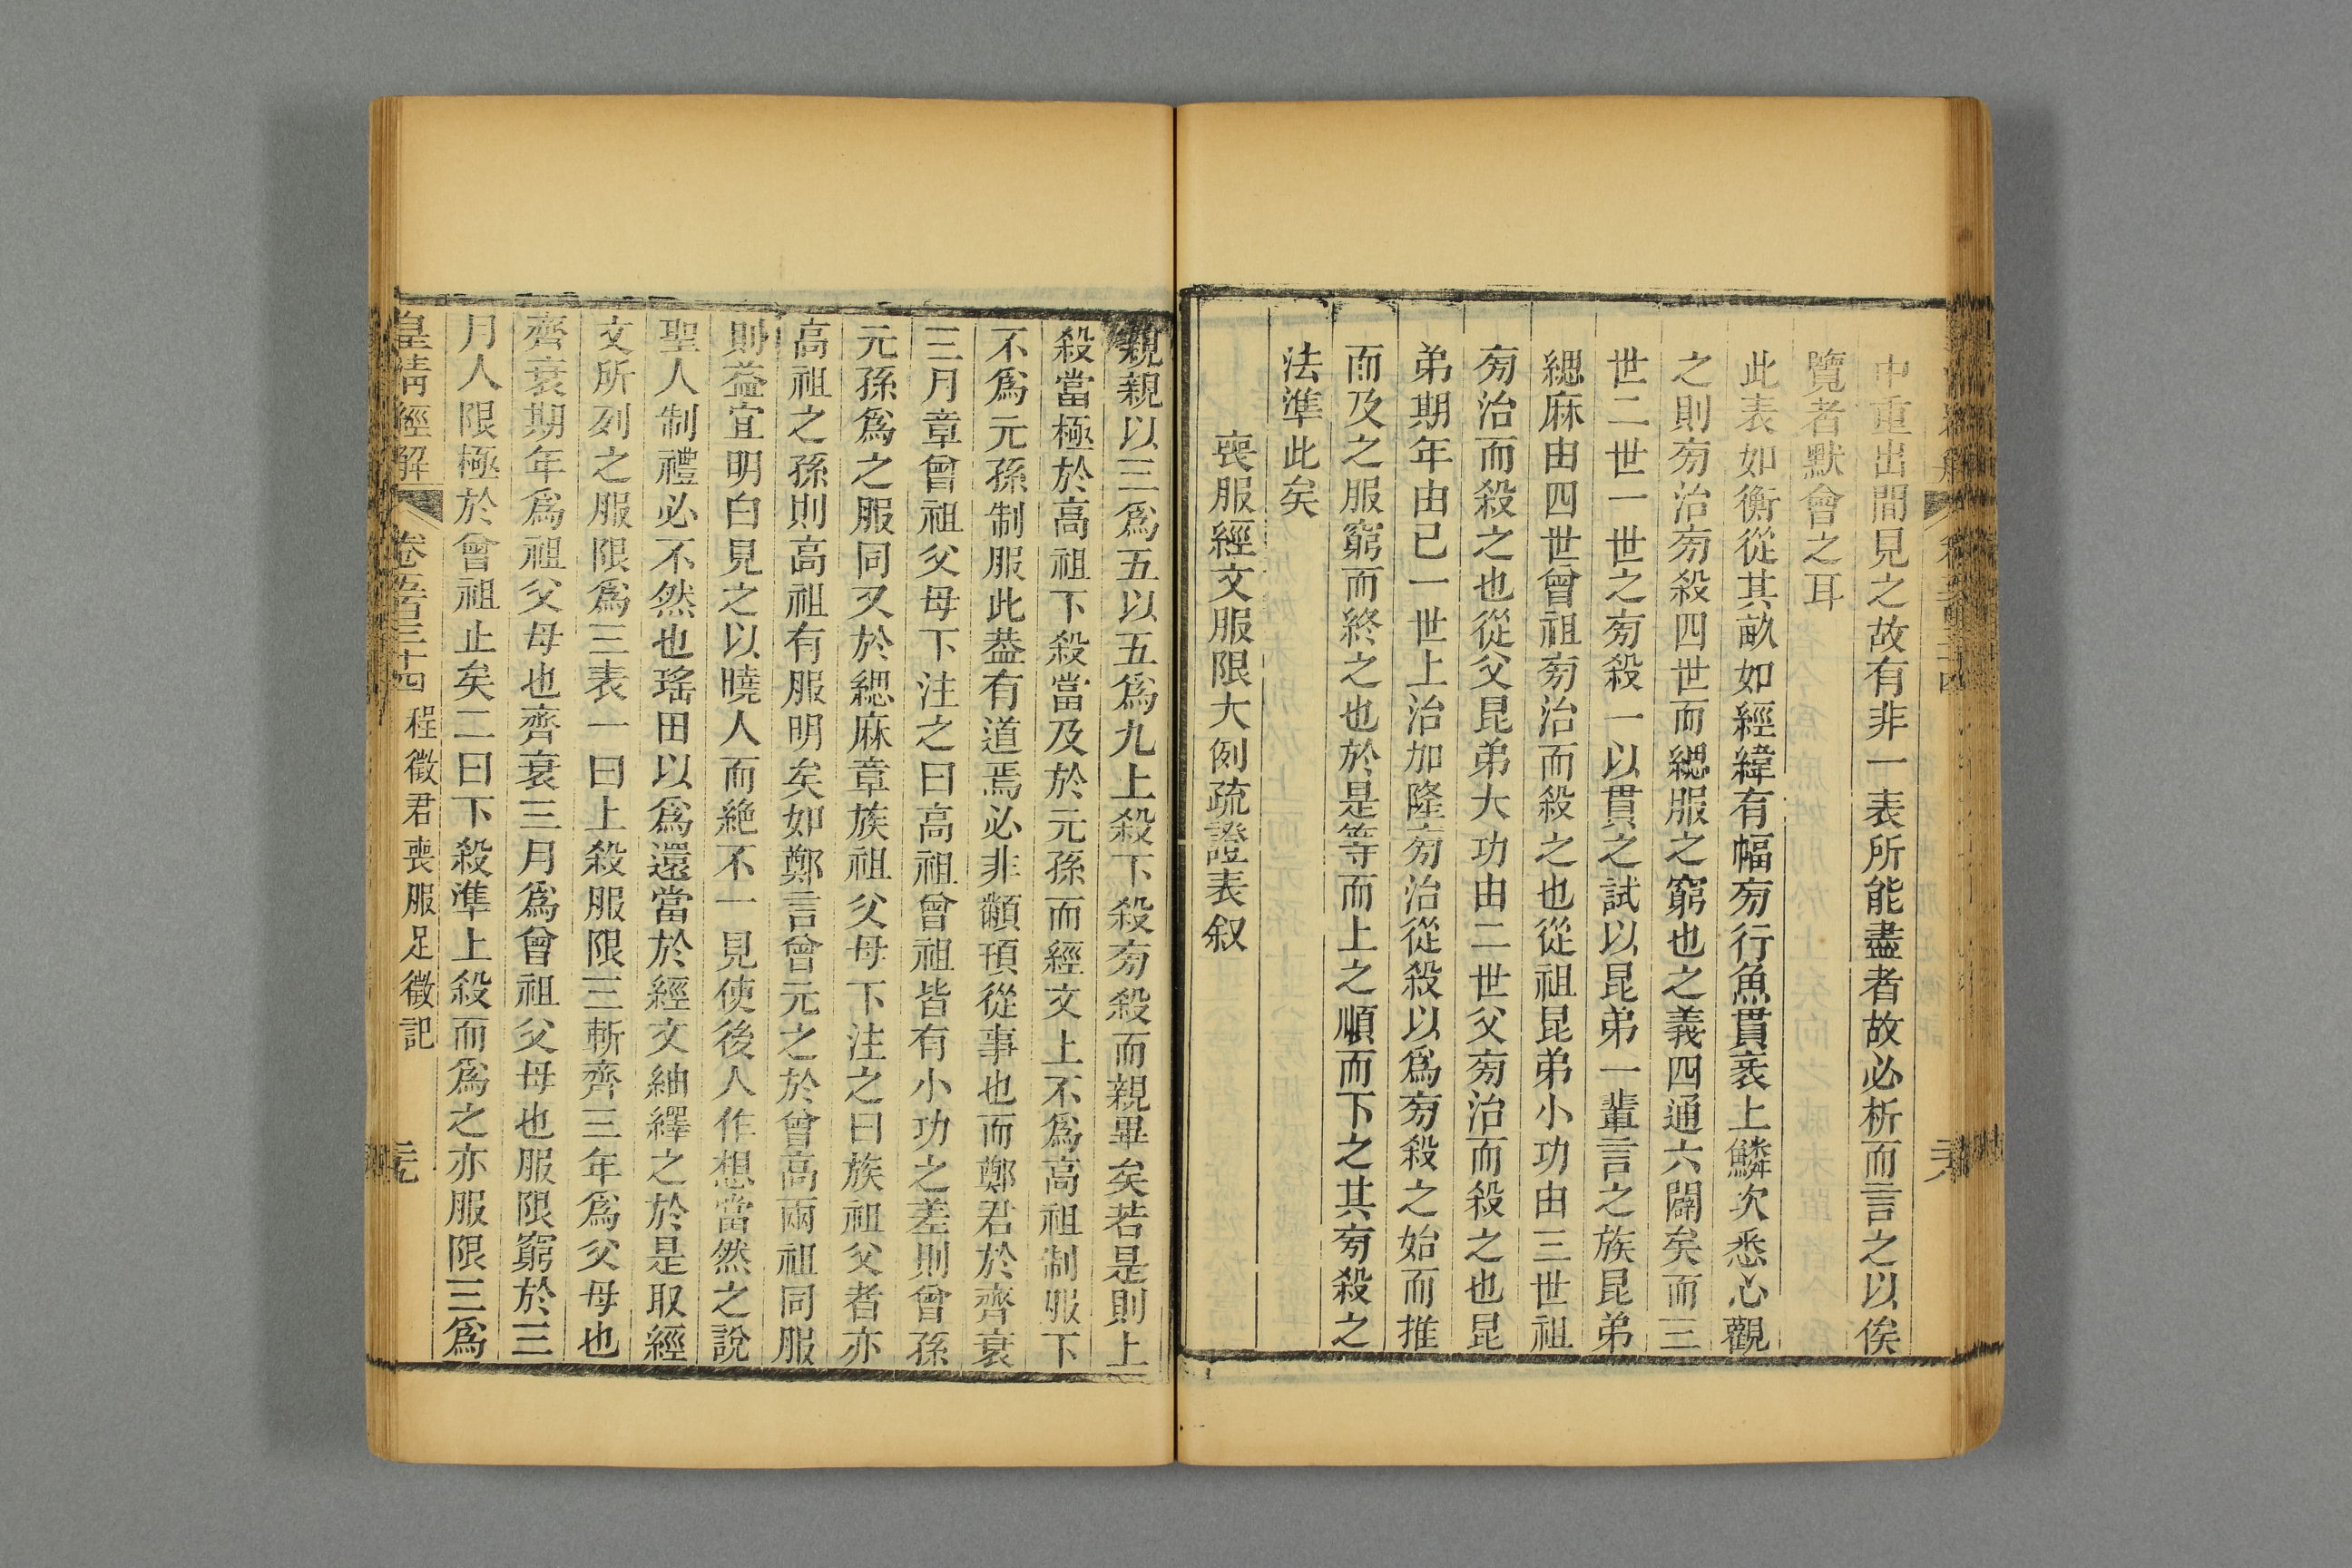 中重出間見之故有非一表所能盡者故必析而言之以俟
覽者默會之耳
此表如衡從其畝如經緯有幅旁行魚貫衺上鱗次悉心觀
之則旁治旁殺四世而緦服之窮也之義四通六闢矣而三
世二世一世之旁殺一以貫之試以昆弟一輩言之族昆弟
緦麻由四世曾祖旁治而殺之也從祖昆弟小功由三世祖
旁治而殺之也從父昆弟大功由二世父旁治而殺之也昆
弟期年由已一世上治加隆旁治從殺以爲旁殺之始而推
而及之服窮而終之也於是等而上之順而下之其旁殺之
法準此矣
喪服經文服限大例疏證表叙
親親以三爲五以五爲九上殺下殺旁殺而親畢矣若是則上
殺當極於高祖下殺當及於元孫而經文上不爲高祖制服下
不爲元孫制服此葢有道焉必非顢頇從事也而鄭君於齊衰
三月章曾祖父母下注之曰高祖曾祖皆有小功之差則曾孫
元孫爲之服同又於緦麻章族祖父母下注之曰族祖父者亦
高祖之孫則高祖有服明矣如鄭言曾元之於曾高兩祖同服
則葢宜明白見之以曉人而絶不一見使後人作想當然之說
聖人制禮必不然也瑤田以爲還當於經文紬繹之於是取經
文所列之服限爲三表一曰上殺服限三斬齊三年爲父母也
齊衰期年爲祖父母也齊衰三月爲曾祖父母也服限窮於三
月人限極於曾祖止矣二曰下殺準上殺而爲之亦服限三爲
皇清經解 卷五百三十四 程徵君喪服足徵記 元